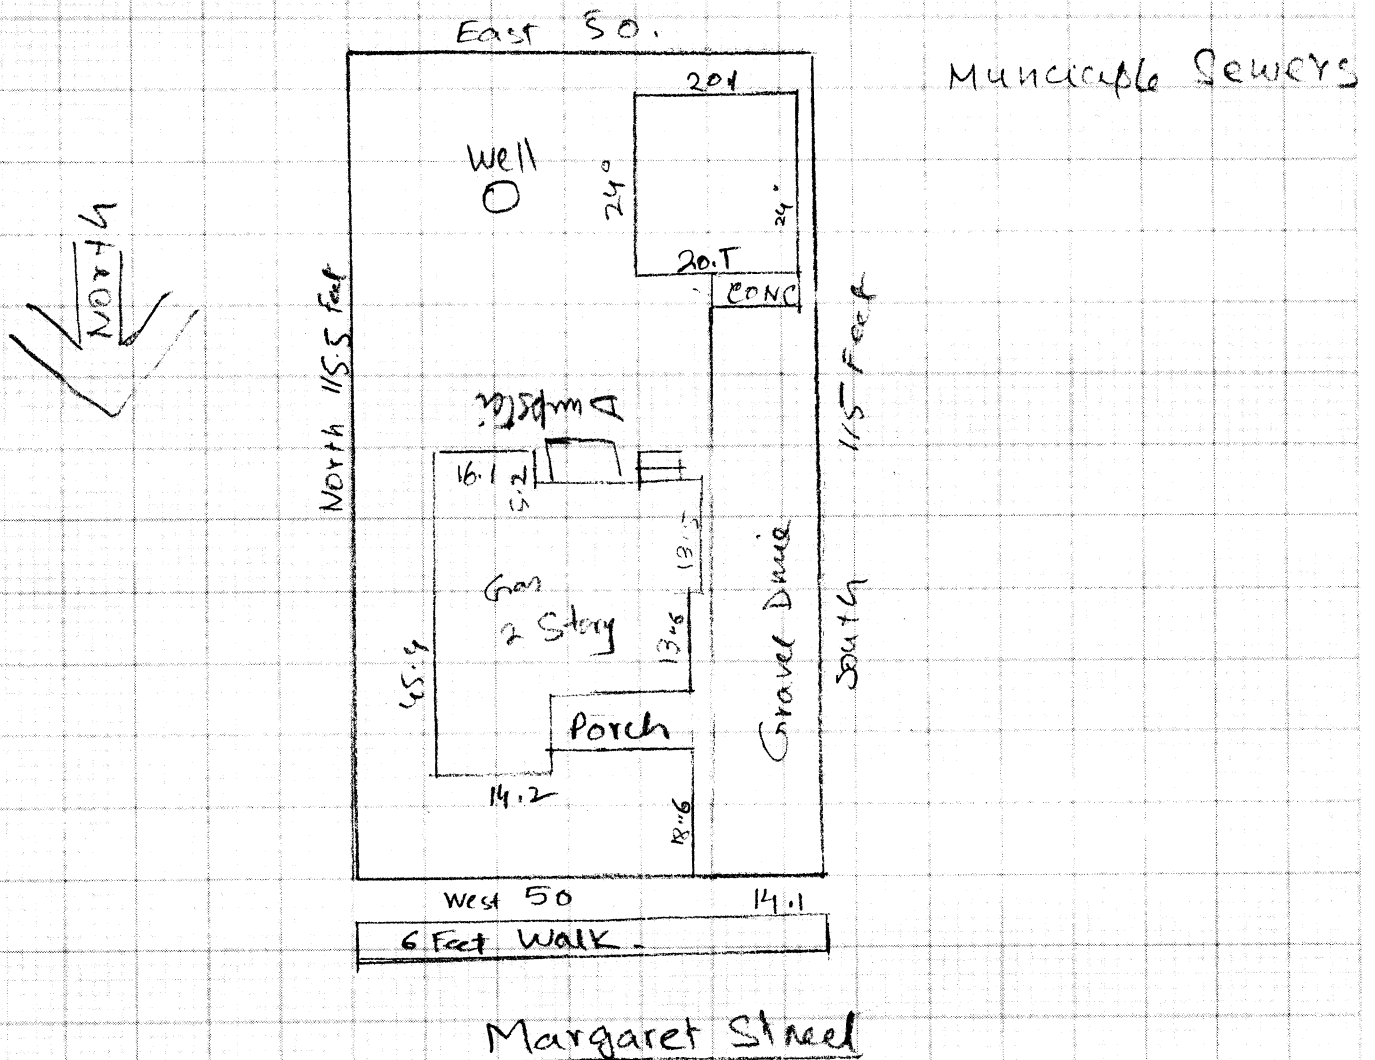 East 50.
Munciciple Sewers
20.1
Well
24°
24"
North
20.T
CONC
North 115.5 Feet
115 Feet
South
Dumpster
16.1
5.2
13.5
Gas
2 Story
13"6
Gravel Drive
45.4
Porch
14.2
18"6
West 50
14.1
6 Feet Walk.
Margaret Street